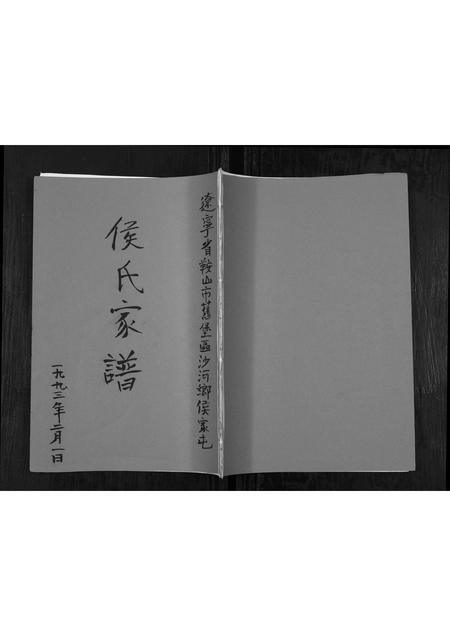 遼寧省鞍山市舊堡區沙河鄉侯家屯
侯氏家譜
一九九三年二月一日